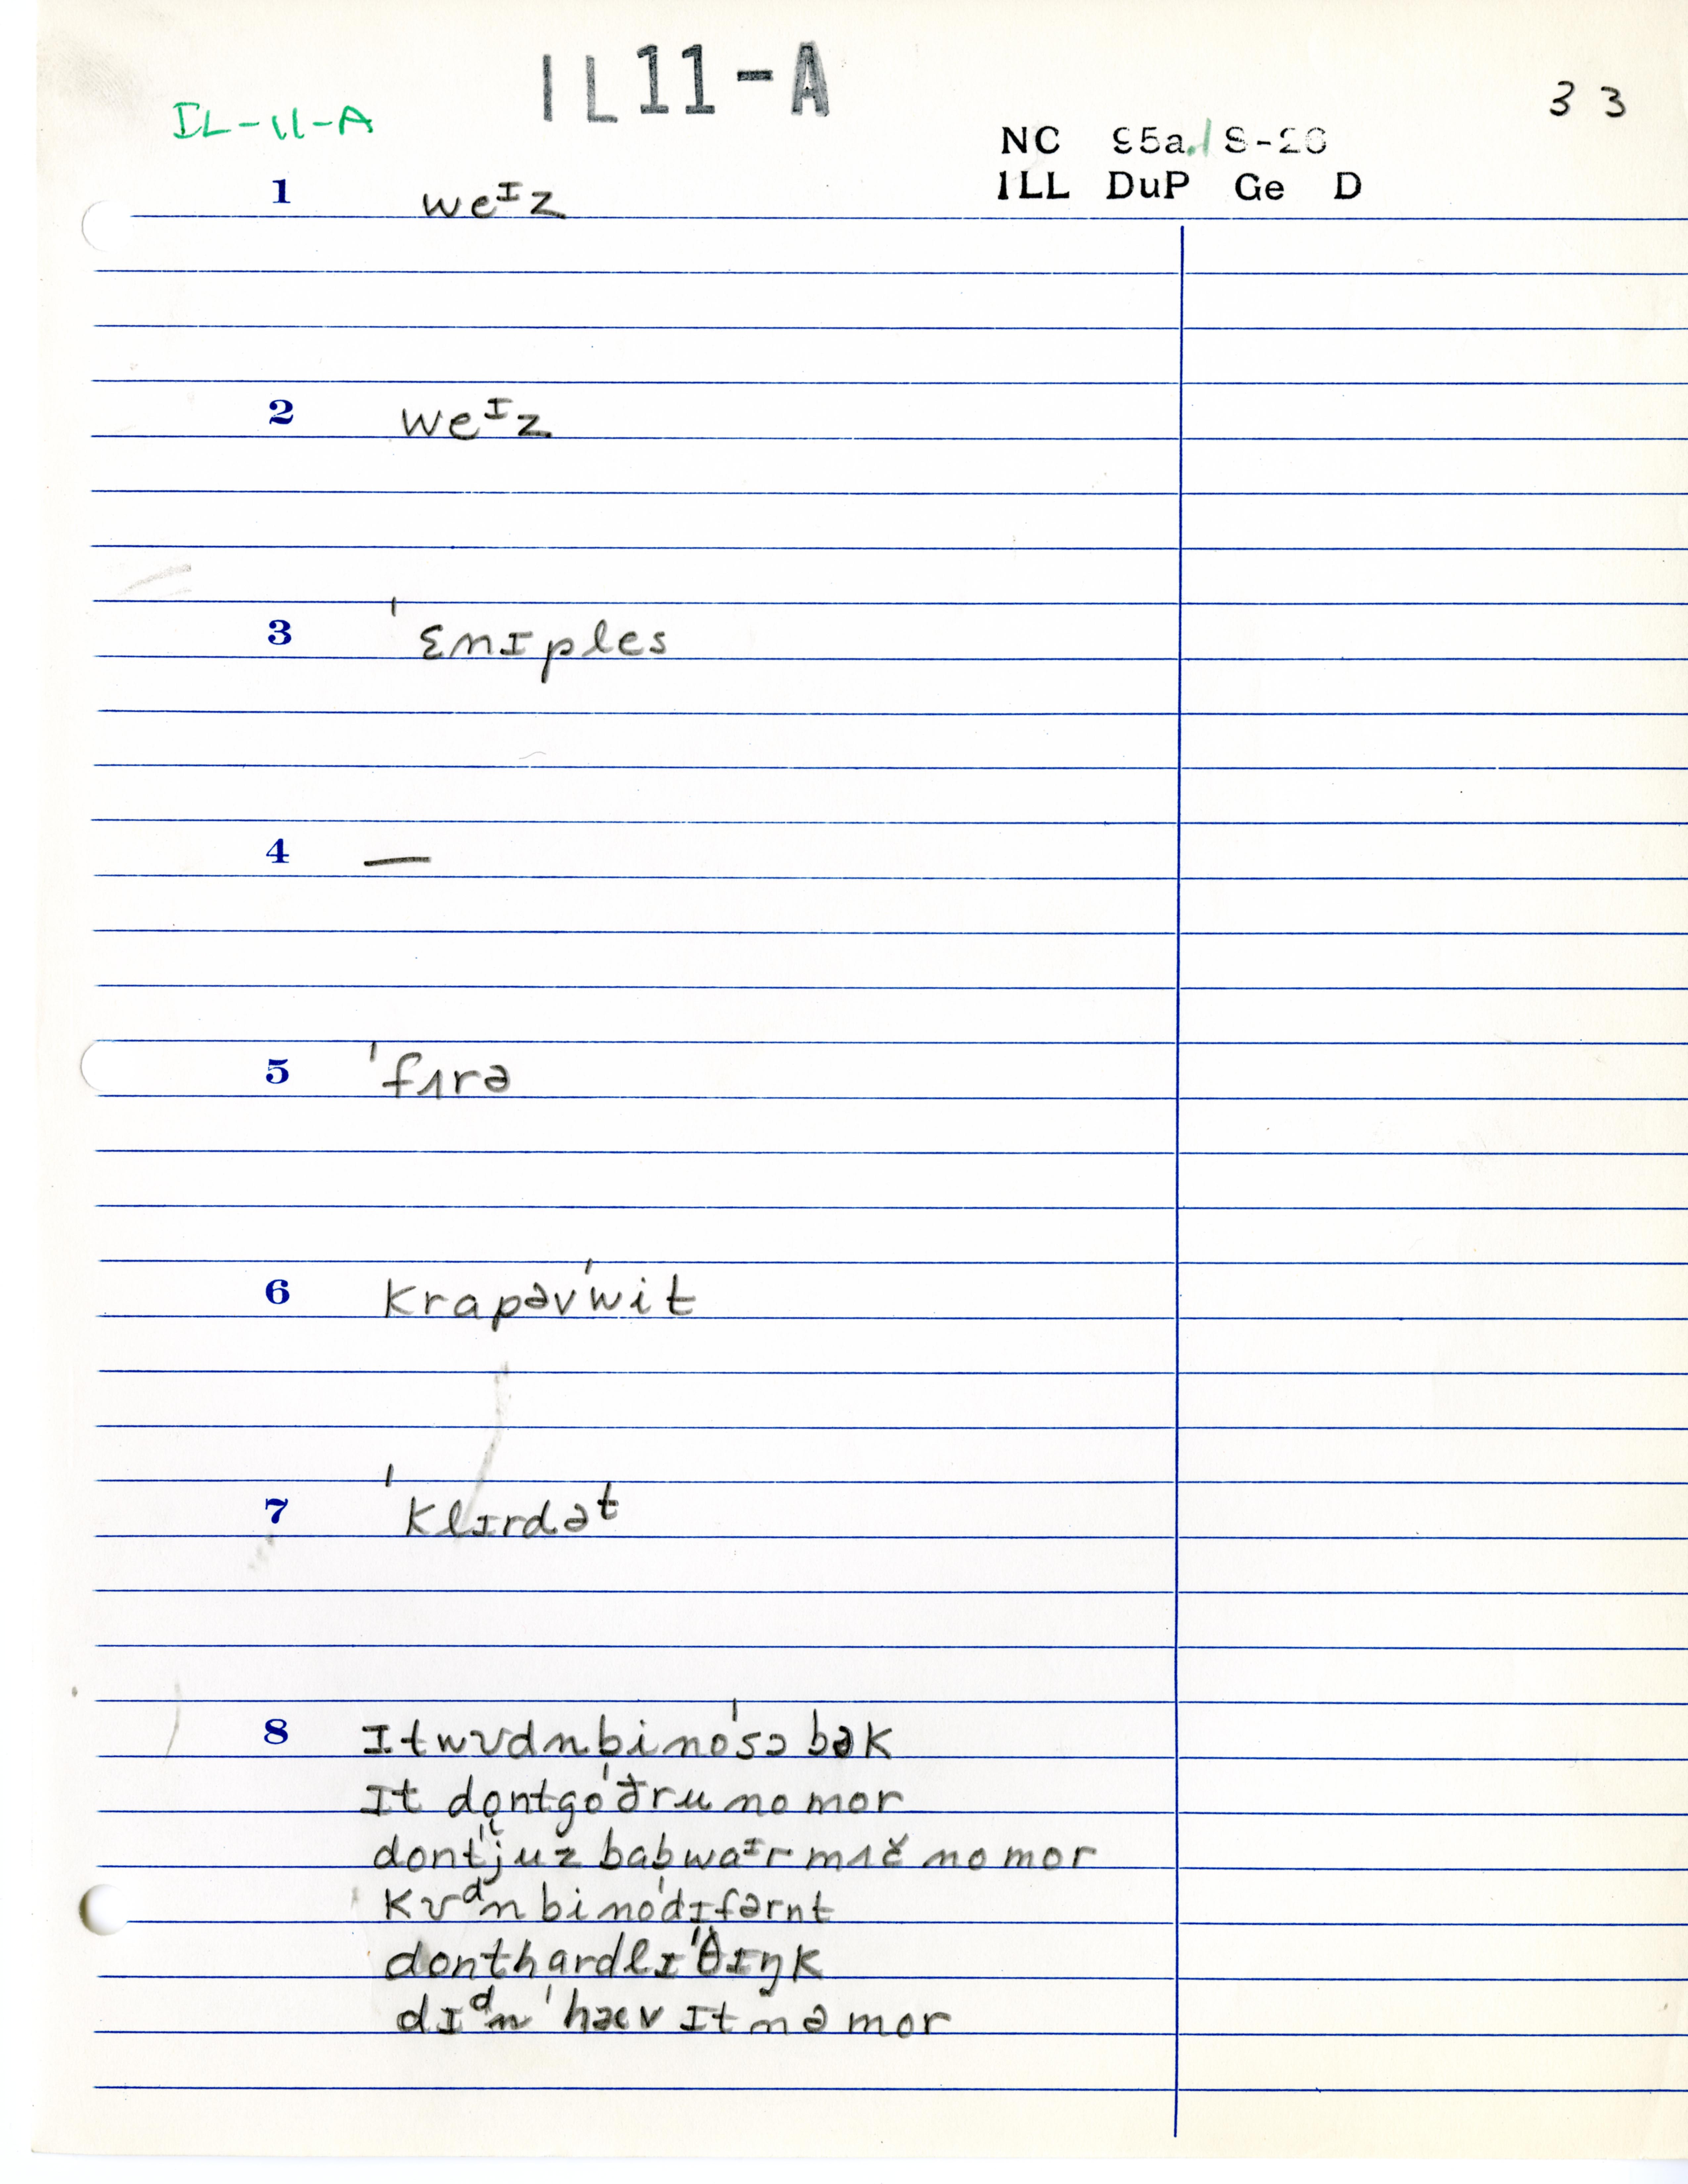 IL11-A
33
IL-11-A
NC 95a/S-26
ILL DuP Ge D
1 weᶦz
2 weᶦz
3 ˈɛnɪples
4 —
5 ˈfʌrə
6 krapəvˈwit
7 ˈklɪrdəᵗ
8 ɪtwʊdnbinoˈsɔbək
ɪt dontgoˈðrunomor
dontˈjuzbabwaᶦrmʌčnomor
kʊᵈnbinoˈdɪfərnt
donthardlɪˈθɪŋk
dɪᵈnˈhævɪtnəmor